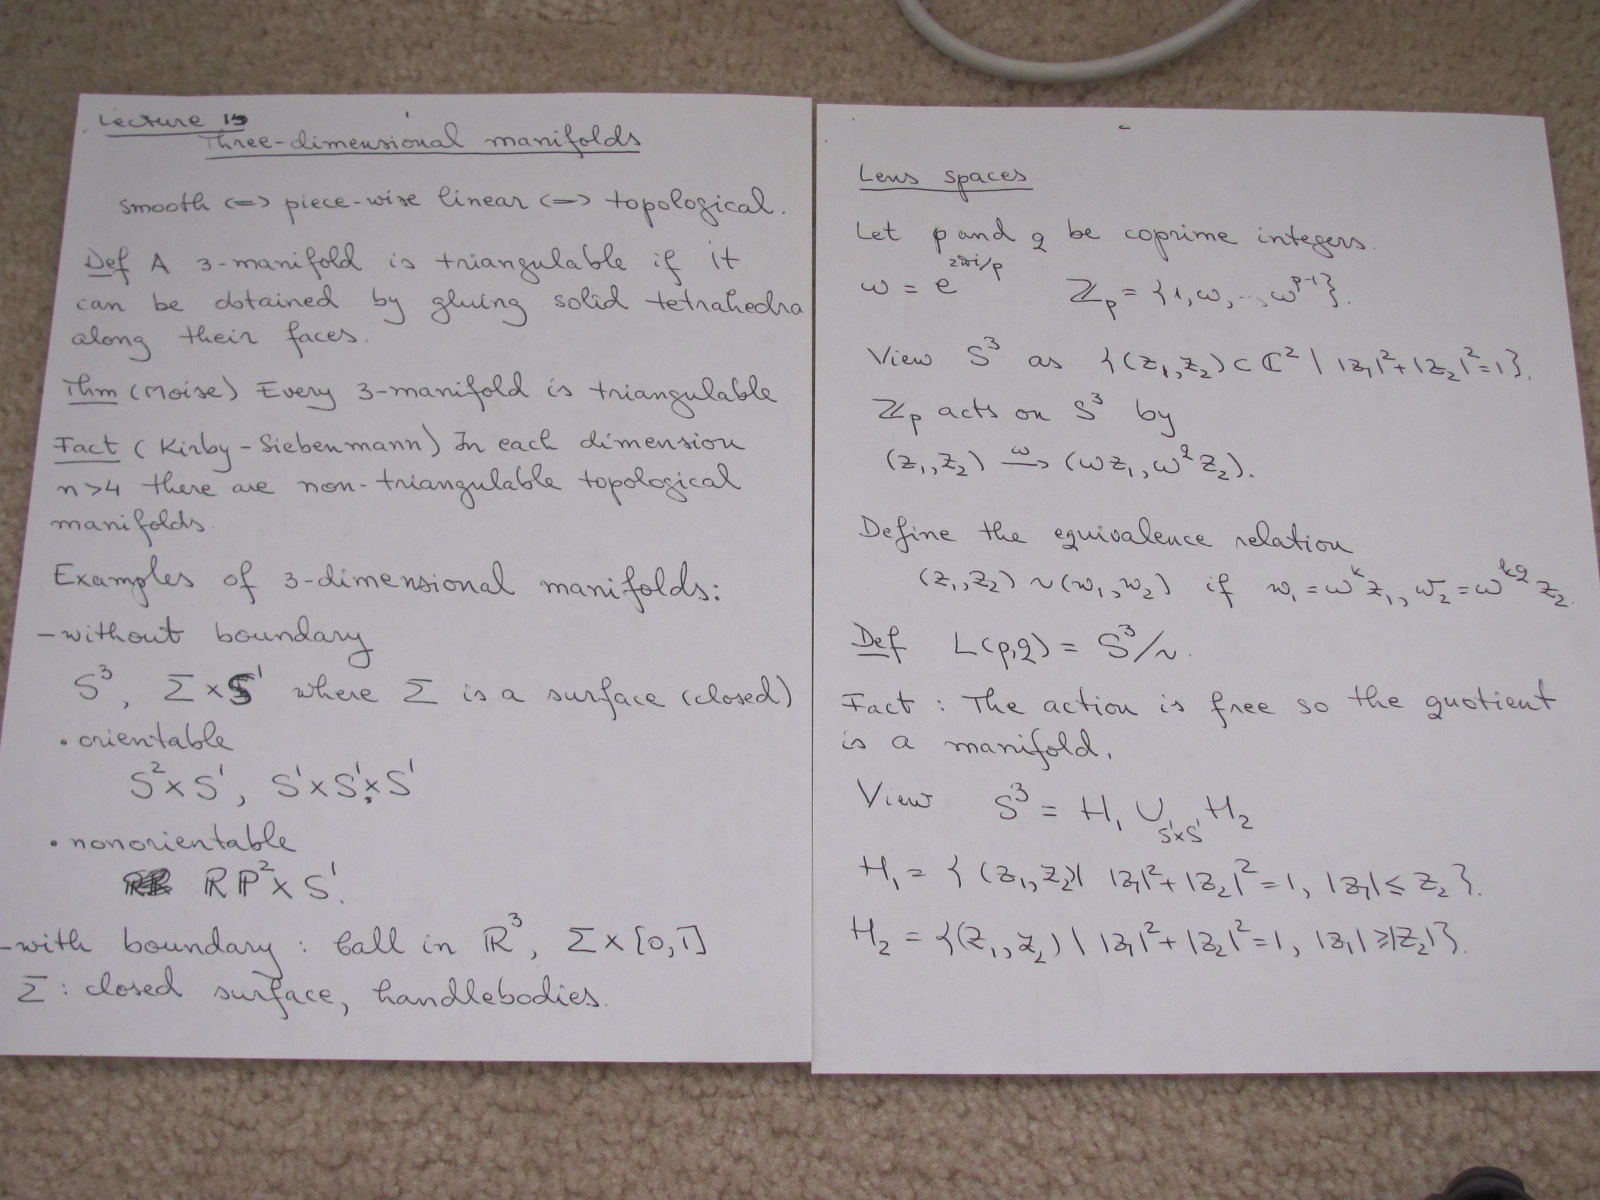 Lecture 15
Three-dimensional manifolds
smooth <=> piece-wise linear <=> topological.
Def A 3-manifold is triangulable if it
can be obtained by gluing solid tetrahedra
along their faces.
Thm (Moise) Every 3-manifold is triangulable
Fact (Kirby-Siebenmann) In each dimension
n>4 there are non-triangulable topological
manifolds.
Examples of 3-dimensional manifolds:
- without boundary
S³, Σ×S¹ where Σ is a surface (closed)
• orientable
S²×S¹, S¹×S¹×S¹
• nonorientable
RP²×S¹.
- with boundary : ball in ℝ³, Σ×[0,1]
Σ : closed surface, handlebodies.
Lens spaces
Let p and q be coprime integers.
ω = e^{2πi/p} ℤ_p = {1, ω, ..., ω^{p-1}}.
View S³ as {(z₁,z₂) ⊂ ℂ² | |z₁|²+|z₂|²=1}.
ℤ_p acts on S³ by
(z₁,z₂) —ω→ (ωz₁, ω^q z₂).
Define the equivalence relation
(z₁,z₂) ~ (w₁,w₂) if w₁ = ω^k z₁, w₂ = ω^{kq} z₂.
Def L(p,q) = S³/~.
Fact : The action is free so the quotient
is a manifold.
View S³ = H₁ ∪_{S¹×S¹} H₂
H₁ = { (z₁,z₂)| |z₁|²+|z₂|²=1, |z₁| ≤ z₂ }.
H₂ = {(z₁,z₂) | |z₁|²+|z₂|²=1, |z₁| ≥ |z₂|}.